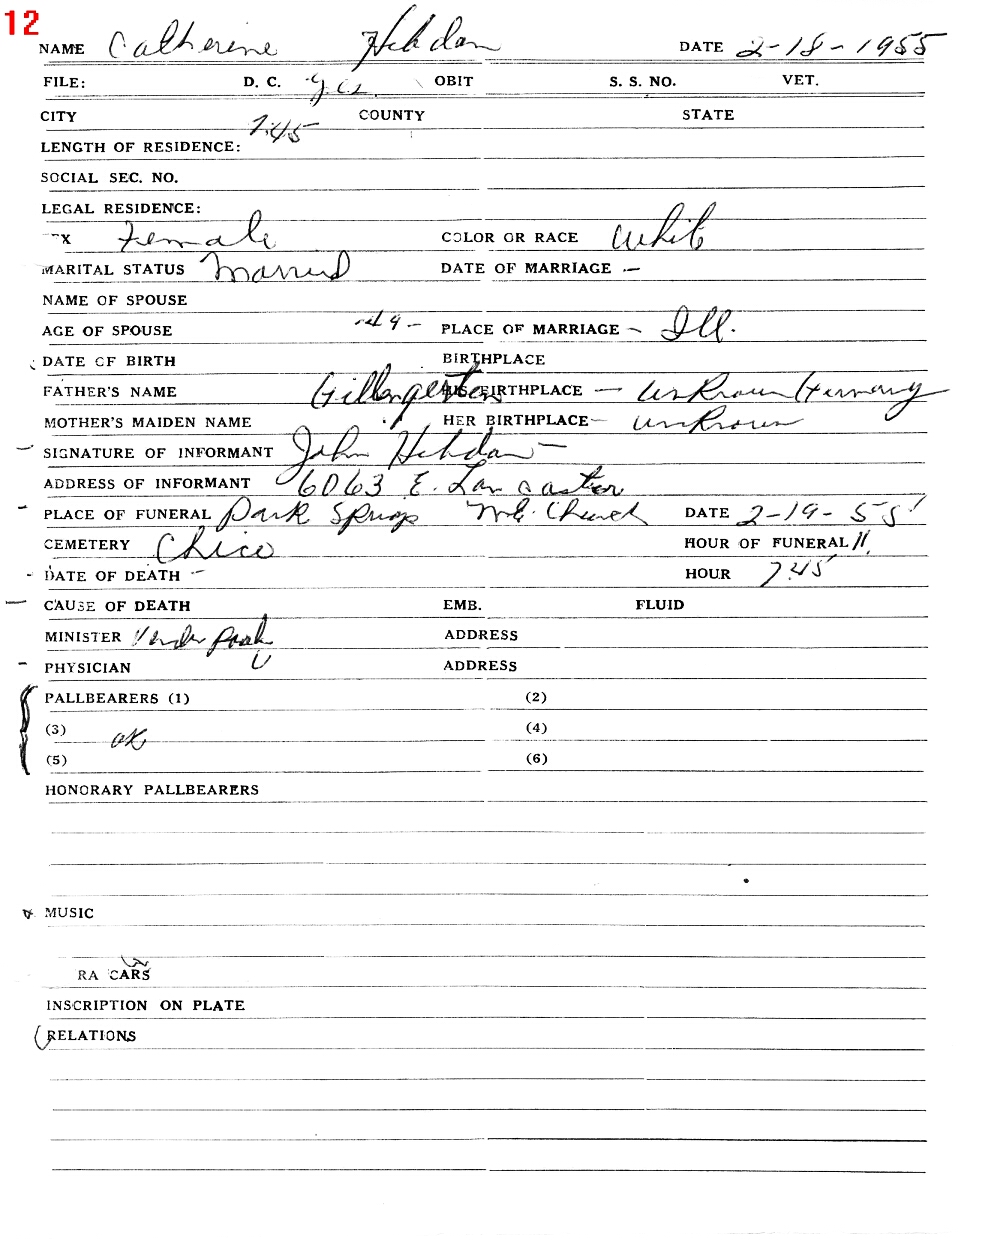 12
NAME Catherine Hebdon DATE 2-18-1955
FILE: D. C. yes OBIT S. S. NO. VET.
CITY 7:45 COUNTY STATE
LENGTH OF RESIDENCE:
SOCIAL SEC. NO.
LEGAL RESIDENCE:
X Female COLOR OR RACE White
MARITAL STATUS Married DATE OF MARRIAGE -
NAME OF SPOUSE
AGE OF SPOUSE PLACE OF MARRIAGE - Ill.
DATE OF BIRTH BIRTHPLACE
FATHER'S NAME HIS BIRTHPLACE - unknown Germany
MOTHER'S MAIDEN NAME HER BIRTHPLACE - unknown
SIGNATURE OF INFORMANT John Hebdon -
ADDRESS OF INFORMANT 6063 E. Lancaster
PLACE OF FUNERAL Park Springs M.E. Church DATE 2-19-55
CEMETERY Chico HOUR OF FUNERAL 11,
DATE OF DEATH - HOUR 7:45
CAUSE OF DEATH EMB. FLUID
MINISTER ADDRESS
PHYSICIAN ADDRESS
PALLBEARERS (1) (2)
(3) ok (4)
(5) (6)
HONORARY PALLBEARERS
MUSIC
RA CARS
INSCRIPTION ON PLATE
RELATIONS